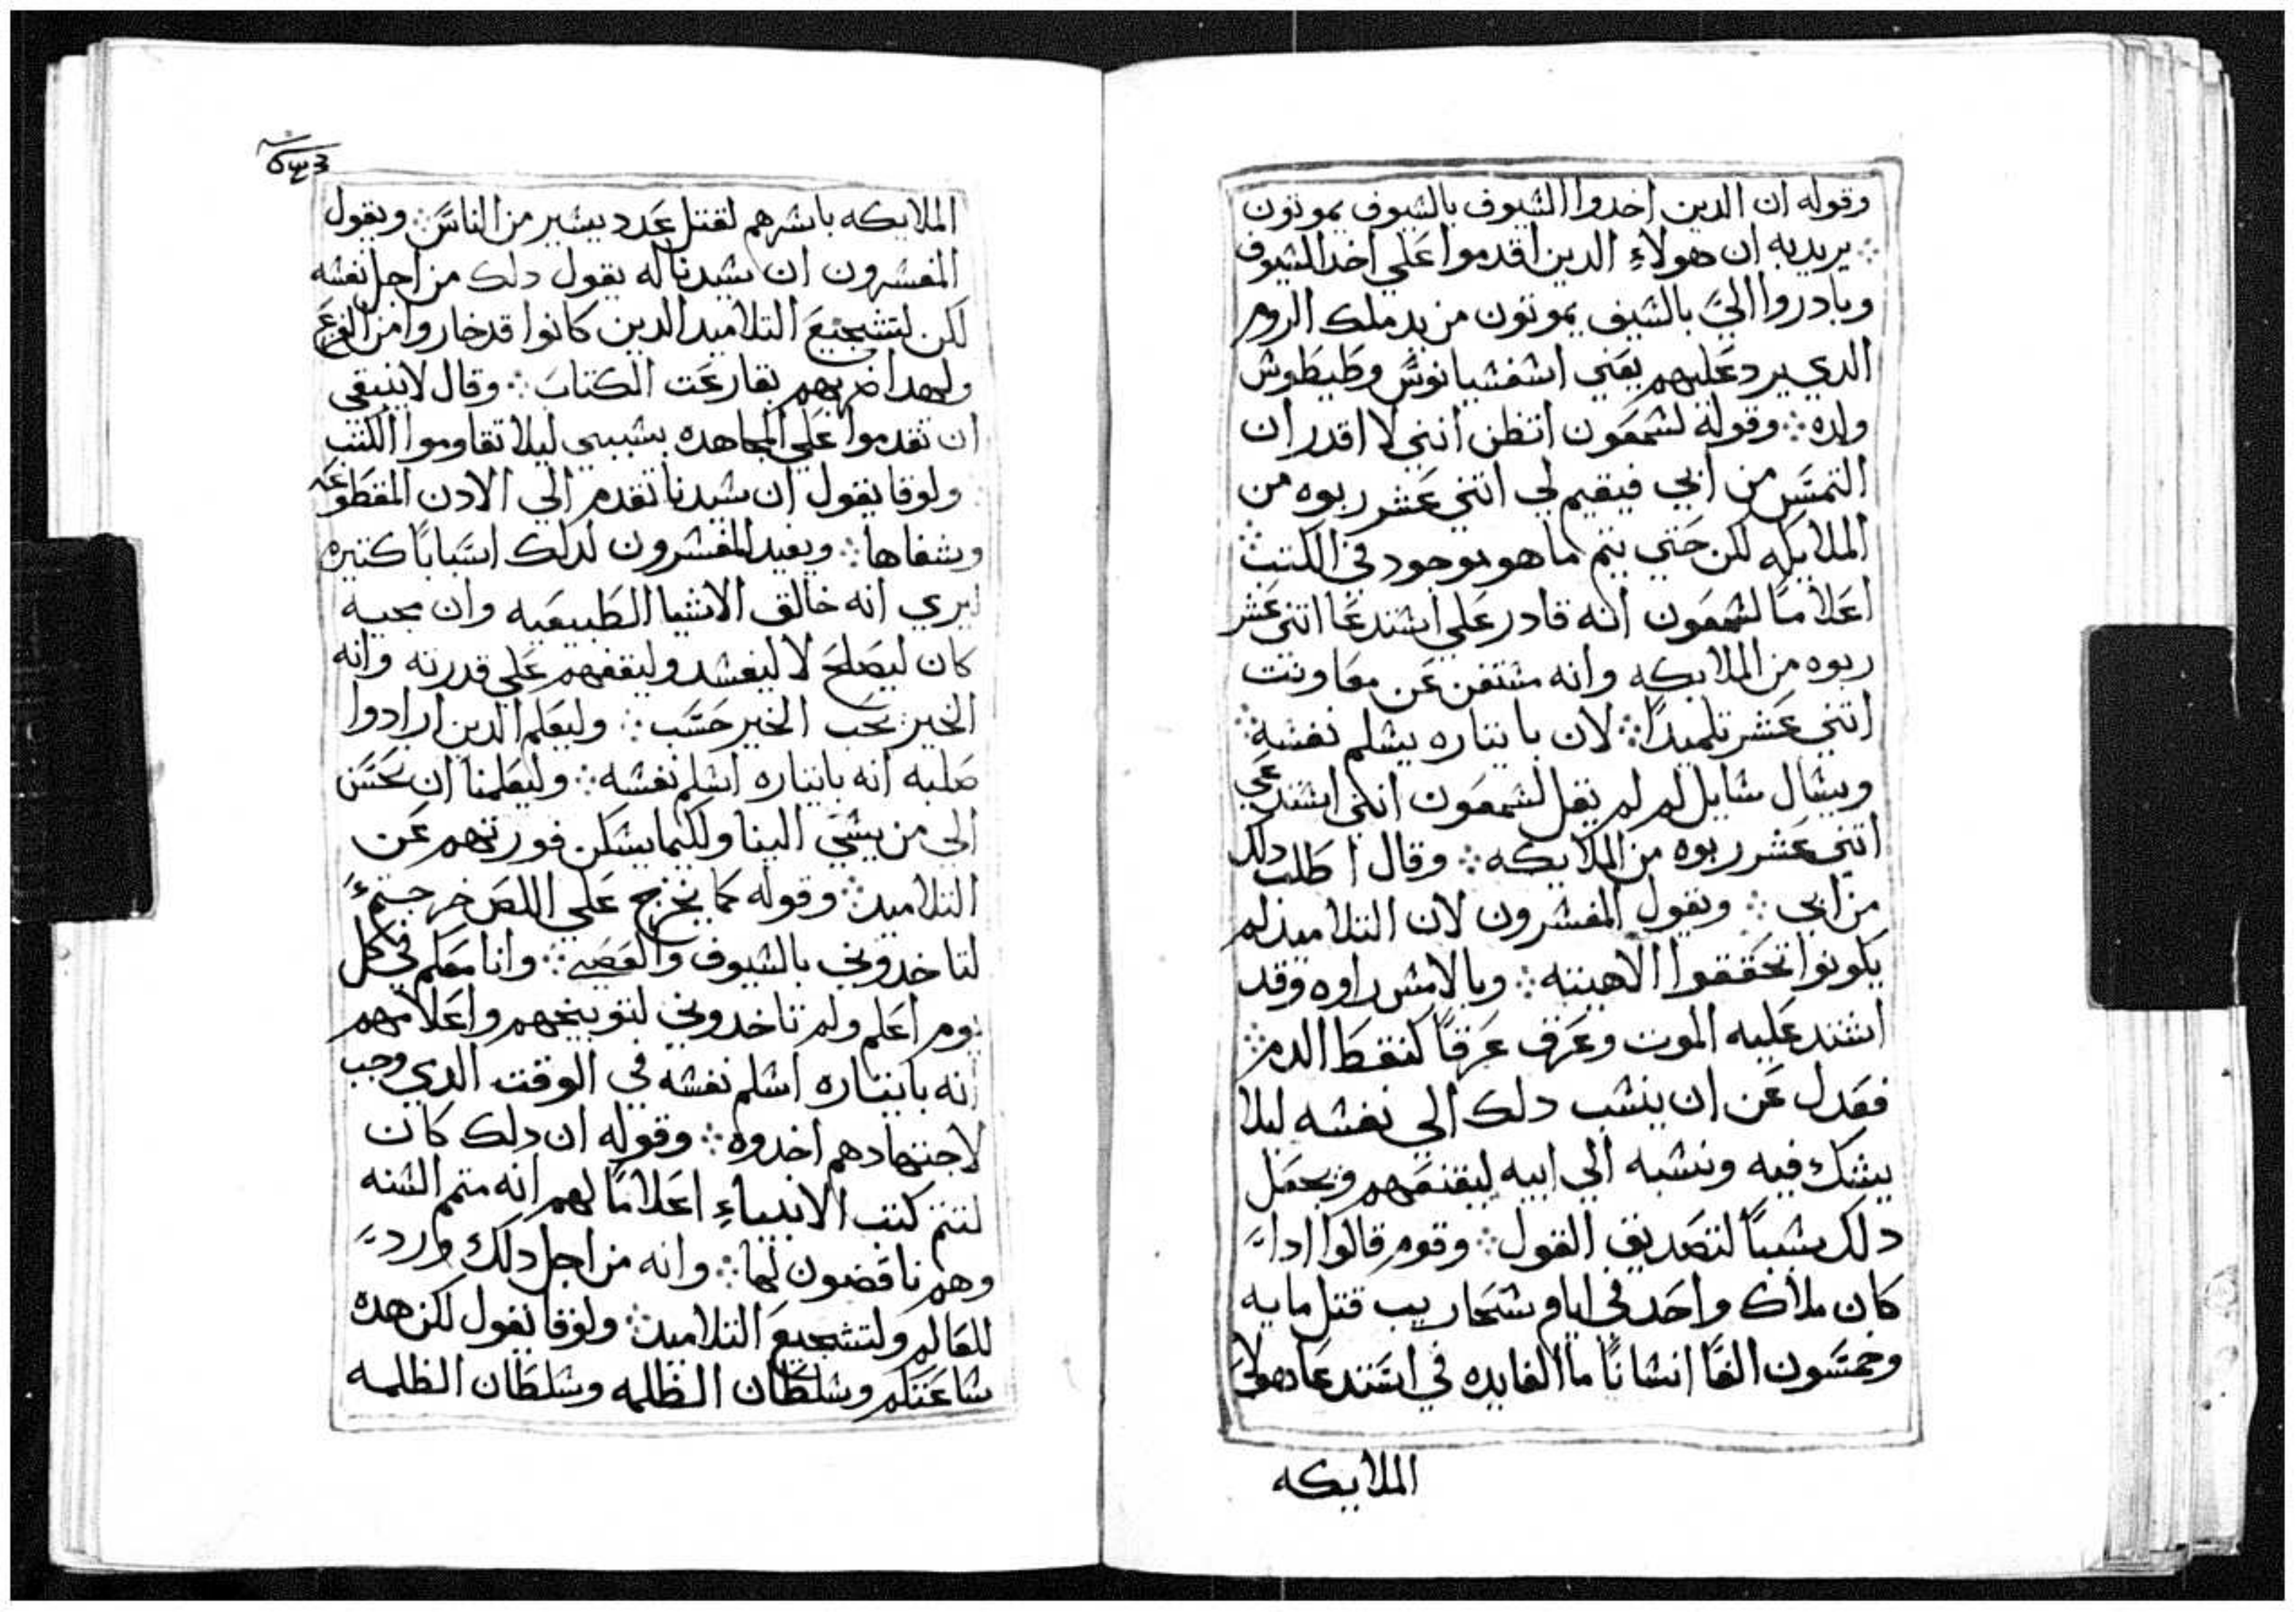 وقوله ان الدين اخدوا السيوف بالسيوف يموتون
يريد به ان هولاءِ الدين اقدموا علي اخد السيوف
وبادروا اليَّ بالسيف يموتون من يد ملك الروم
الدي يرد عليهم يعني اسفسيانوس وطيطوش
ولده ؞ وقوله لشمعون اتظن انني لا اقدر ان
التمس من ابي فيقيم لي اتني عشر ربوه من
الملايكه لكن حتي يتم ما هو موجود في الكتب ؞
اعلاماً لشمعون انه قادر علي استدعا اتني عشر
ربوه من الملايكه وانه مستغن عن معاونت
اتني عشر تلميداً ؞ لان بايتاره يسلم نفسه ؞
ويسال سايل لم لم يقل لشمعون انني استدعي
اتني عشر ربوه من الملايكه ؞ وقال اطلب دلك
من ابي ؞ ويقول المفسرون لان التلاميذ لم
يكونوا تحققوا الاهيته ؞ وبالامس راوه وقد
اشتد عليه الموت وعرق عرقاً كنقط الدم ؞
فعدل عن ان ينسب دلك الي نفسه ليلا
يشك فيه ونسبه الي ابيه ليقنعهم ويجعل
دلك سبباً لتصديق القول ؞ وقوم قالوا ادا
كان ملاك واحد في ايام سنحاريب قتل مايه
وخمسون الفاً انساناً ما الفايده في استدعا هولاي
الملايكه
الملايكه باسرهم لقتل عدد يسير من الناس ؞ ويقول
المفسرون ان سيدنا له يقول دلك من اجل نفسه
لكن لتشجيع التلاميد الدين كانوا قد خاروا من الفزع
ولهدا ضربهم بقارعت الكتاب ؞ وقال لا ينبغي
ان تقدموا علي المجاهده بسببي ليلا تقاوموا الكتب
ولوقا يقول ان سيدنا تقدم الي الادن المقطوعه
وشفاها ؞ ويعيد المفسرون لدلك اسباباً كتيره
ليري انه خالق الاشيا الطبيعيه وان مجيه
كان ليصلح لا ليفسد وليقفهم علي قدرته وانه
الخير يحب الخير حسب ؞ وليعلم الدين ارادوا
صلبه انه بايتاره اسلم نفسه ؞ وليعلمنا ان نحسن
الي من يسي الينا ولكيما يسكن فورتهم عن
التلاميد ؞ وقوله كما يخرج علي اللص خرجتم
لتاخدوني بالسيوف والعصي ؞ وانا معكم في كل
يوم اعلم ولم تاخدوني لتوبيخهم واعلامهم
انه بايتاره اسلم نفسه في الوقت الدي وجب
لاجتهادهم اخدوه ؞ وقوله ان دلك كان
لتتم كتب الانبياءِ اعلاماً لهم انه متم السنه
وهم ناقضون لها ؞ وانه من اجل دلك وارد
للعالم ولتشجيع التلاميد ؞ ولوقا يقول لكن هده
ساعتكم وسلطان الظلمه وسلطان الظلمه